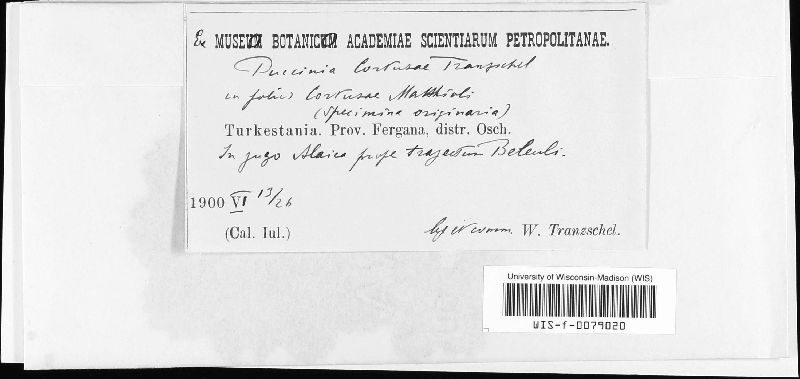 Ex MUSEUM BOTANICUM ACADEMIAE SCIENTIARUM PETROPOLITANAE.
Puccinia Cortusae Tranzschel
in foliis Cortusae Matthioli
(specimina originaria)
Turkestania. Prov. Fergana, distr. Osch.
In jugo Alaica prope trajectum Beleuli.
1900 VI 13/26
(Cal. Iul.)
W. Tranzschel.
University of Wisconsin-Madison (WIS)
WIS-f-0079020